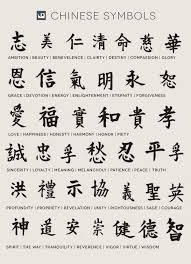 CHINESE SYMBOLS
志 美 仁 清 命 慈 華
AMBITION | BEAUTY | BENEVOLENCE | CLAIRTY | DESTINY | COMPASSION | GLORY
恩 信 氣 明 永 恕
GRACE | DEVOTION | ENERGY | ENLIGHTENMENT | ETERNITY | FORGIVENESS
愛 福 實 和 貴 孝
LOVE | HAPPINESS | HONESTY | HARMONY | HONOR | PIETY
誠 忠 孚 愁 忍 平 孚
SINCERITY | LOYALTY | MEANING | MELANCHOLY | PATIENCE | TRUTH
洪 禮 示 協 義 聖 英
PROFUNDITY | PROPRIETY | REVELATION | UNITY | RIGHTEOUSNESS | SAGE | COURAGE
神 道 安 崇 健 德 智
SPIRIT | THE WAY | TRANQUILITY | REVERENCE | VIGOR | VIRTUE | WISDOM